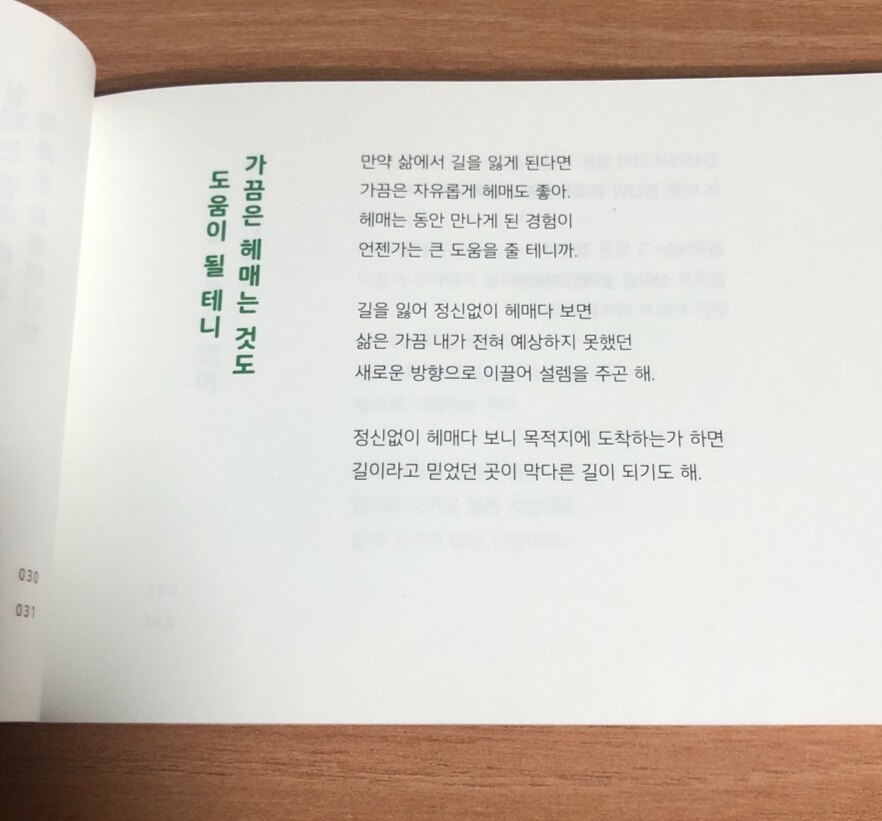 가끔은 헤매는 것도
도움이 될 테니
만약 삶에서 길을 잃게 된다면
가끔은 자유롭게 헤매도 좋아.
헤매는 동안 만나게 된 경험이
언젠가는 큰 도움을 줄 테니까.
길을 잃어 정신없이 헤매다 보면
삶은 가끔 내가 전혀 예상하지 못했던
새로운 방향으로 이끌어 설렘을 주곤 해.
정신없이 헤매다 보니 목적지에 도착하는가 하면
길이라고 믿었던 곳이 막다른 길이 되기도 해.
030
031